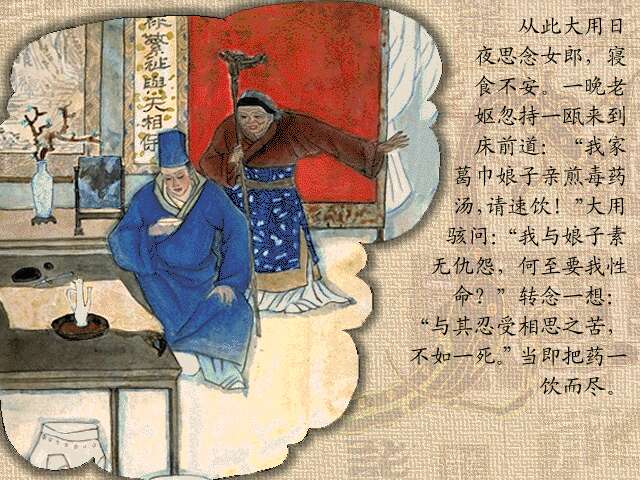 从此大用日
夜思念女郎，寝
食不安。一晚老
妪忽持一瓯来到
床前道：“我家
葛巾娘子亲煎毒药
汤，请速饮！”大用
骇问：“我与娘子素
无仇怨，何至要我性
命？”转念一想：
“与其忍受相思之苦，
不如一死。”当即把药一
饮而尽。